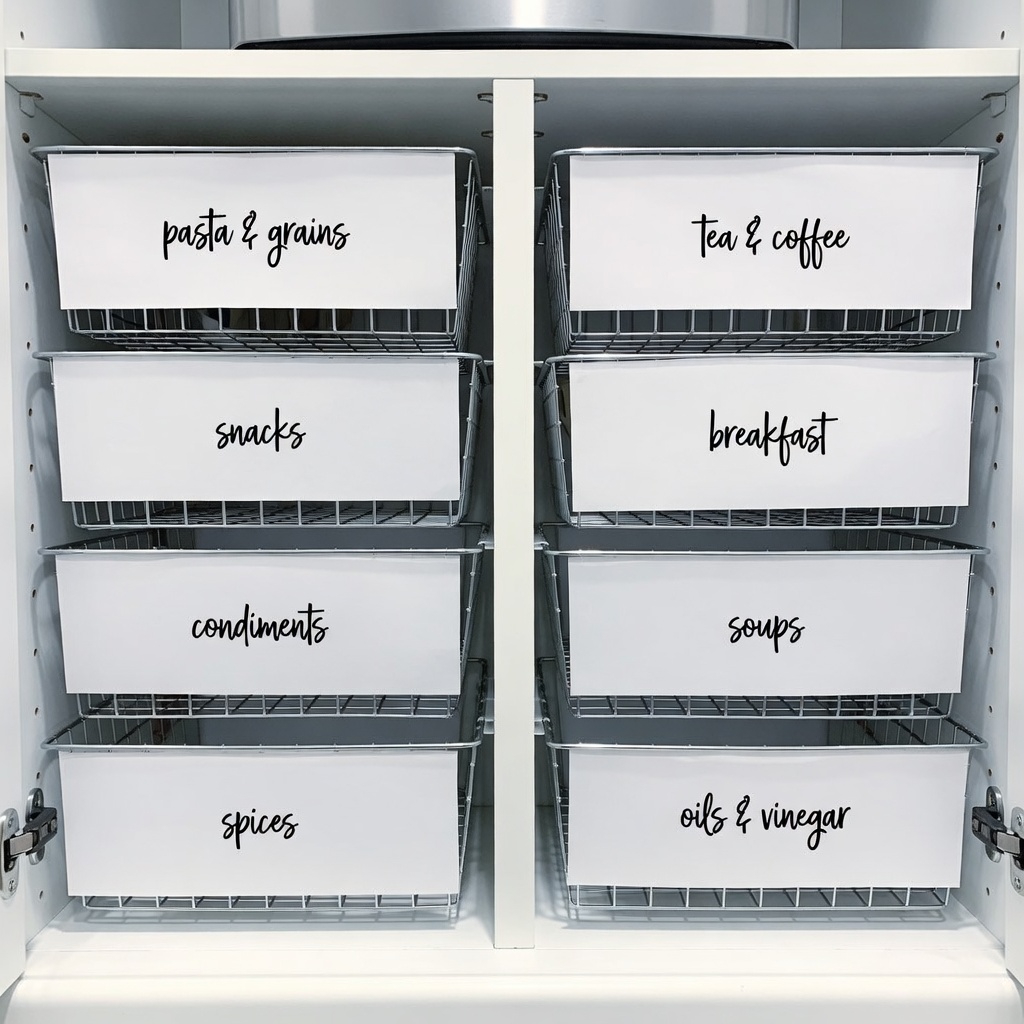 pasta & grains
tea & coffee
snacks
breakfast
condiments
soups
spices
oils & vinegar